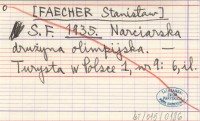 [FAECHER Stanisław]
S. F. 1935. Narciarska
drużyna olimpijska. —
Turysta w Polsce 1, nr 9: 6, il.